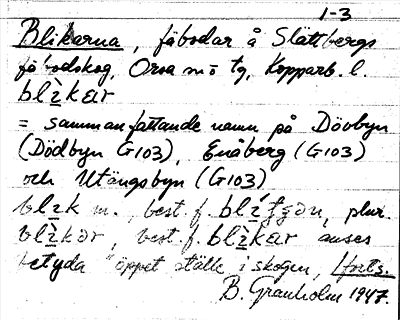 1-3
Blikarna, fäbodar å Slättbergs
fäbodskog, Orsa m o tg, Kopparb. l.
blìkar
= sammanfattande namn på Dövbyn
(Dödbyn G103), Enåberg (G103)
och Utängsbyn (G103)
blik m., best. f. plur.
blìkər, best. f. blìkar anses
betyda "öppet ställe i skogen, Forts.
B. Granholm 1947.